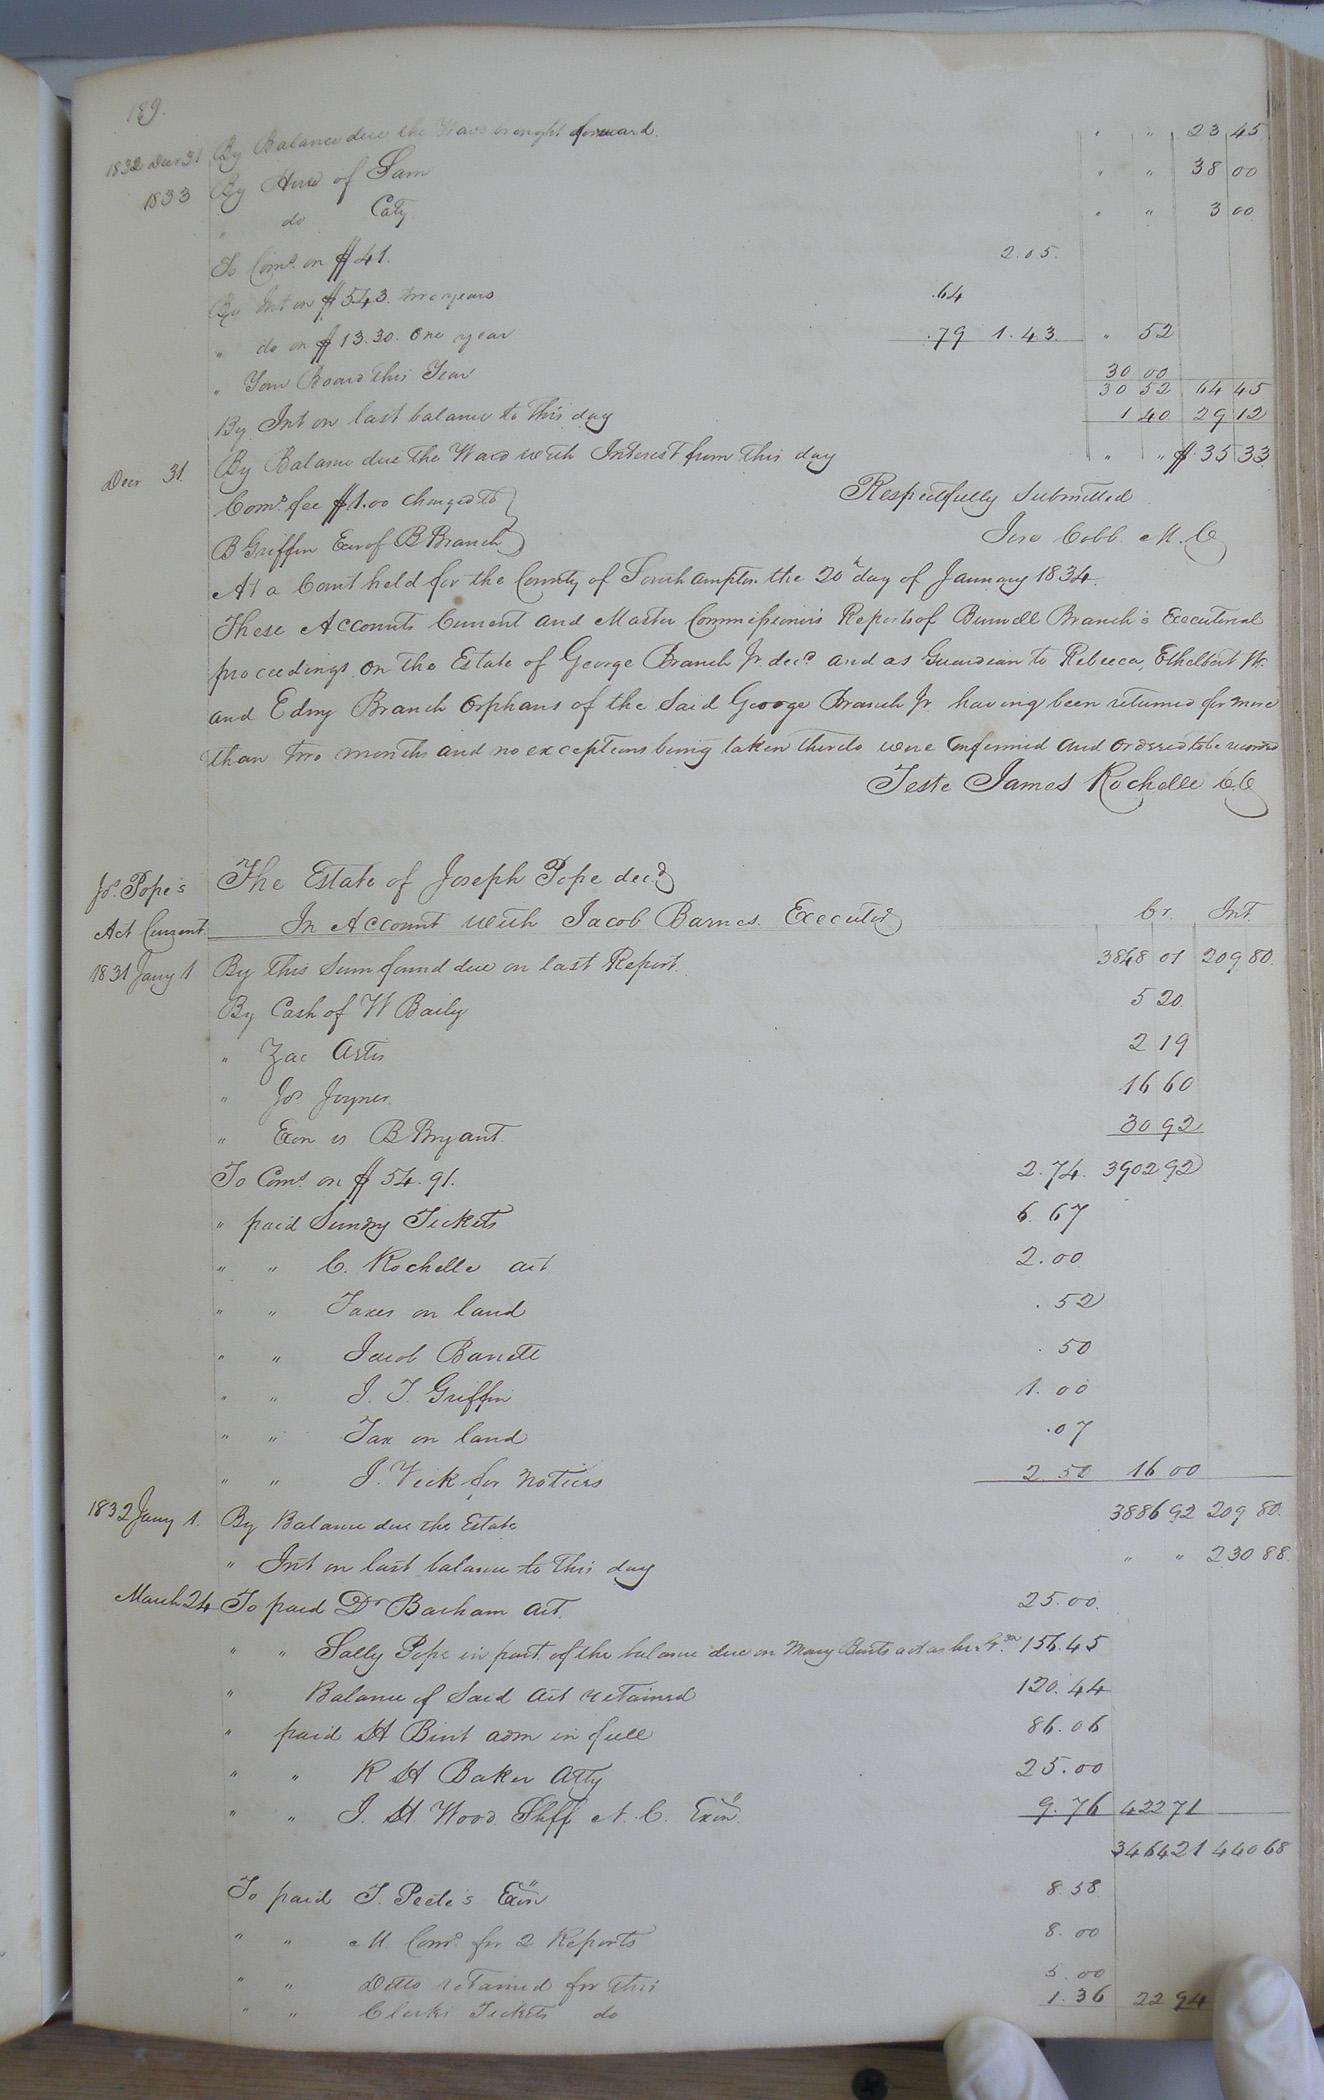 189.
1832 Decr 31 By Balance due the Ward brought forward " " 23 45
1833 By Hire of Sam " " 38 00
" do Caty " " 3 00
To Coms. on $41. 2.05.
By Int on $543. two years .64
" do on $13.30. One year .79 1.43. " 52
" Your Board this Year 30 00
30 52 64 45
By Int on last balance to this day 1 40 29 12
Decr 31. By Balance due the Ward with Interest from this day " " $35 33
Coms. fee $1.00 charged to Respectfully Submitted
B Griffin Exor of B Branch Jere Cobb. M. C
At a Court held for the County of Southampton the 20th day of January 1834.
These Accounts Current and Master Commissioners Reports of Burwell Branch's Executorial
proceedings on the Estate of George Branch Jr. decd and as Guardian to Rebecca, Ethelbert W.
and Edny Branch Orphans of the Said George Branch Jr having been returned for more
than two months and no exceptions being taken thereto were Confirmed and Ordered to be recorded
Teste James Rochelle C.C
Jos. Pope's The Estate of Joseph Pope decd
Act Current In Account with Jacob Barnes. Executor Cr. Int.
1831 Jany 1 By this Sum found due on last Report. 3848 01 209 80.
By Cash of W Baily 5 20.
" Zac Artis 2 19
" Jos. Joyner. 16 60
" Exon vs B Bryant. 30 92
To Coms. on $54.91. 2.74. 3902 92
" paid Sundry Tickets 6.67
" " C. Rochelle act 2.00
" " Taxes on land .52
" " Jacob Barrett .50
" " J. T. Griffin 1.00
" " Tax on land .07
" " J. Vick for Notices 2 50 16 00
1832 Jany 1. By Balance due the Estate 3886 92 209 80.
" Int on last balance to this day " " 230 88
March 24 To paid Dr Barham act. 25.00.
" " Sally Pope in part of the balance due on Mary Bints act as her Gdn 156.45
" Balance of Said act retained 120.44
" paid H Bint adm in full 86.06
" " R H Baker Atty 25.00
" " J. H. Wood. Shff N. C. Exon. 9.76 422 71
3464 21 440 68
To paid T. Peete's Exon 8.58
" " M. Comr. for 2 Reports 8.00
" " Ditto retained for this 5.00
" " Clerks Tickets do 1.36 22 94